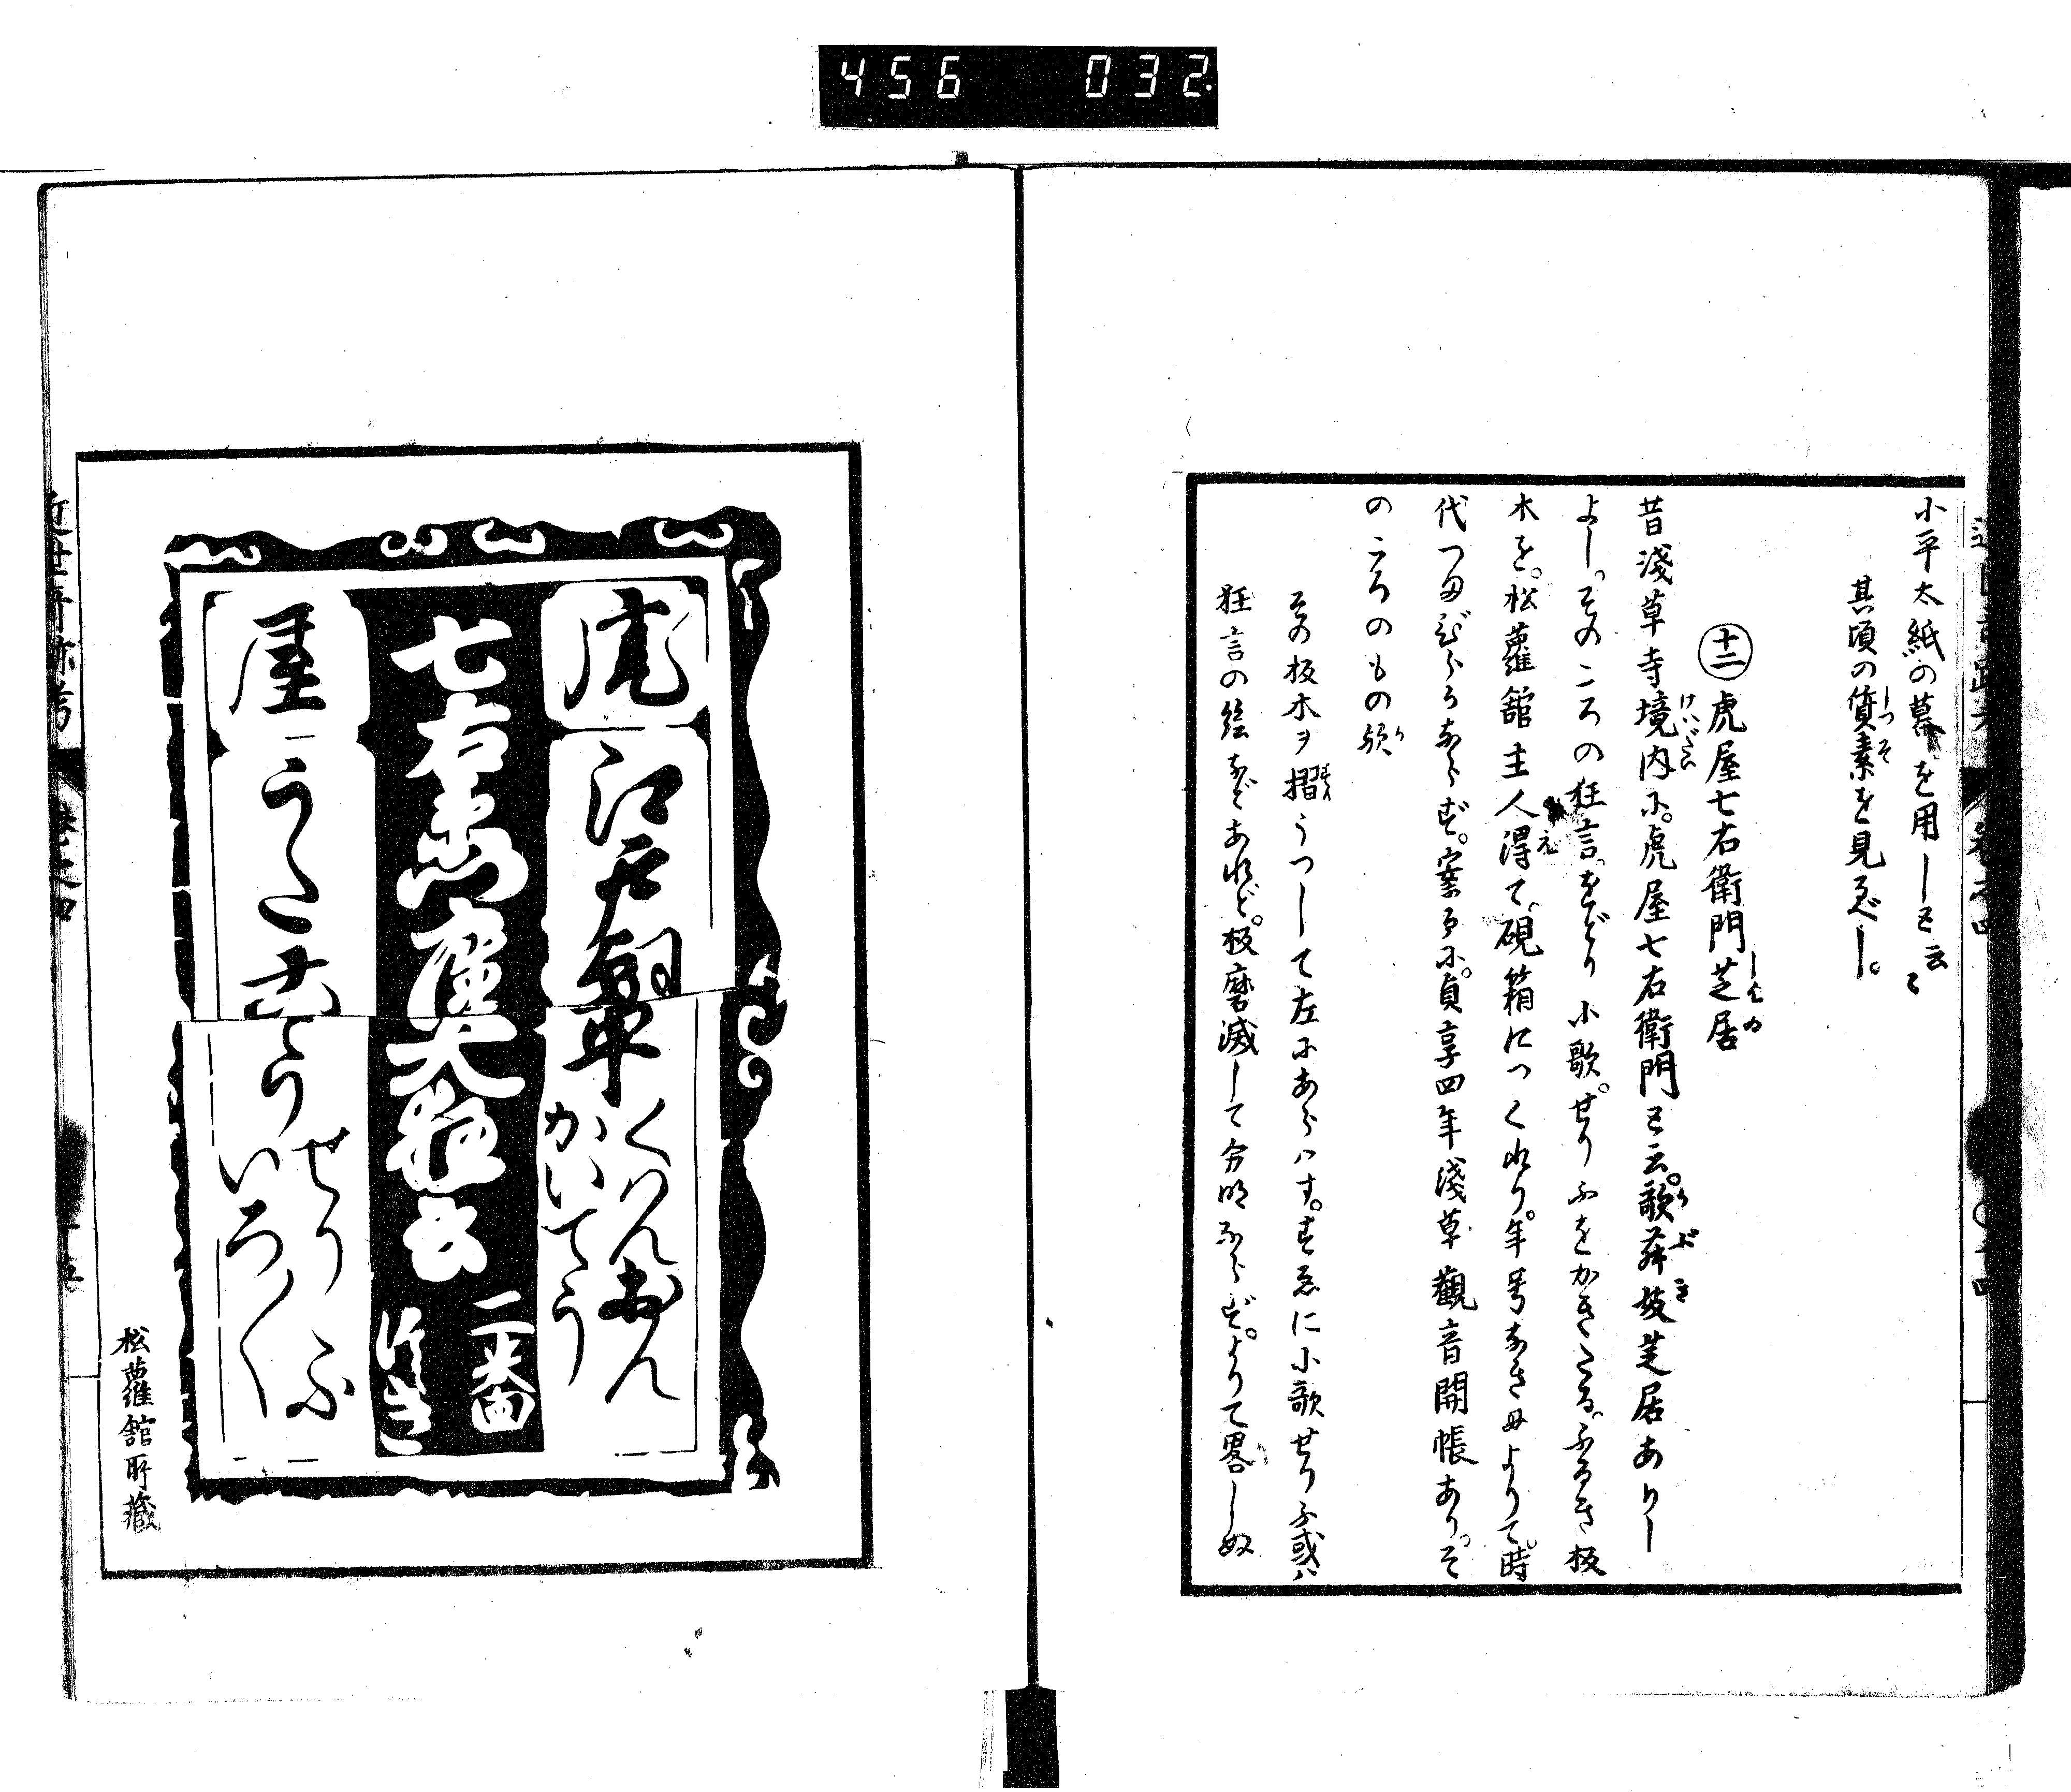 456 032.
小平太紙の幕を用しと云云
其頃の質素を見るべし。
十二 虎屋七右衛門芝居
昔淺草寺境内に。虎屋七右衛門と云。歌舞妓芝居ありし
よし。そのころの狂言をどり小歌。せりふをかきたる。ふるき板
木を。松蘿舘主人得て、硯箱につくれり。年号なきによりて。時
代つまびらかならず。案るに。貞享四年淺草觀音開帳あり。そ
のころのもの歟
その板木ヲ摺うつして左にあらハす。すゑに小歌せりふ或ハ
狂言の絵などあれど。板磨滅して分明ならず。よりて畧しぬ
虎
江戸
くハんおん
かいてう
七右衛門座大狂言
二番
つゞき
屋
うたせりふ
いろ〱
松蘿舘所藏